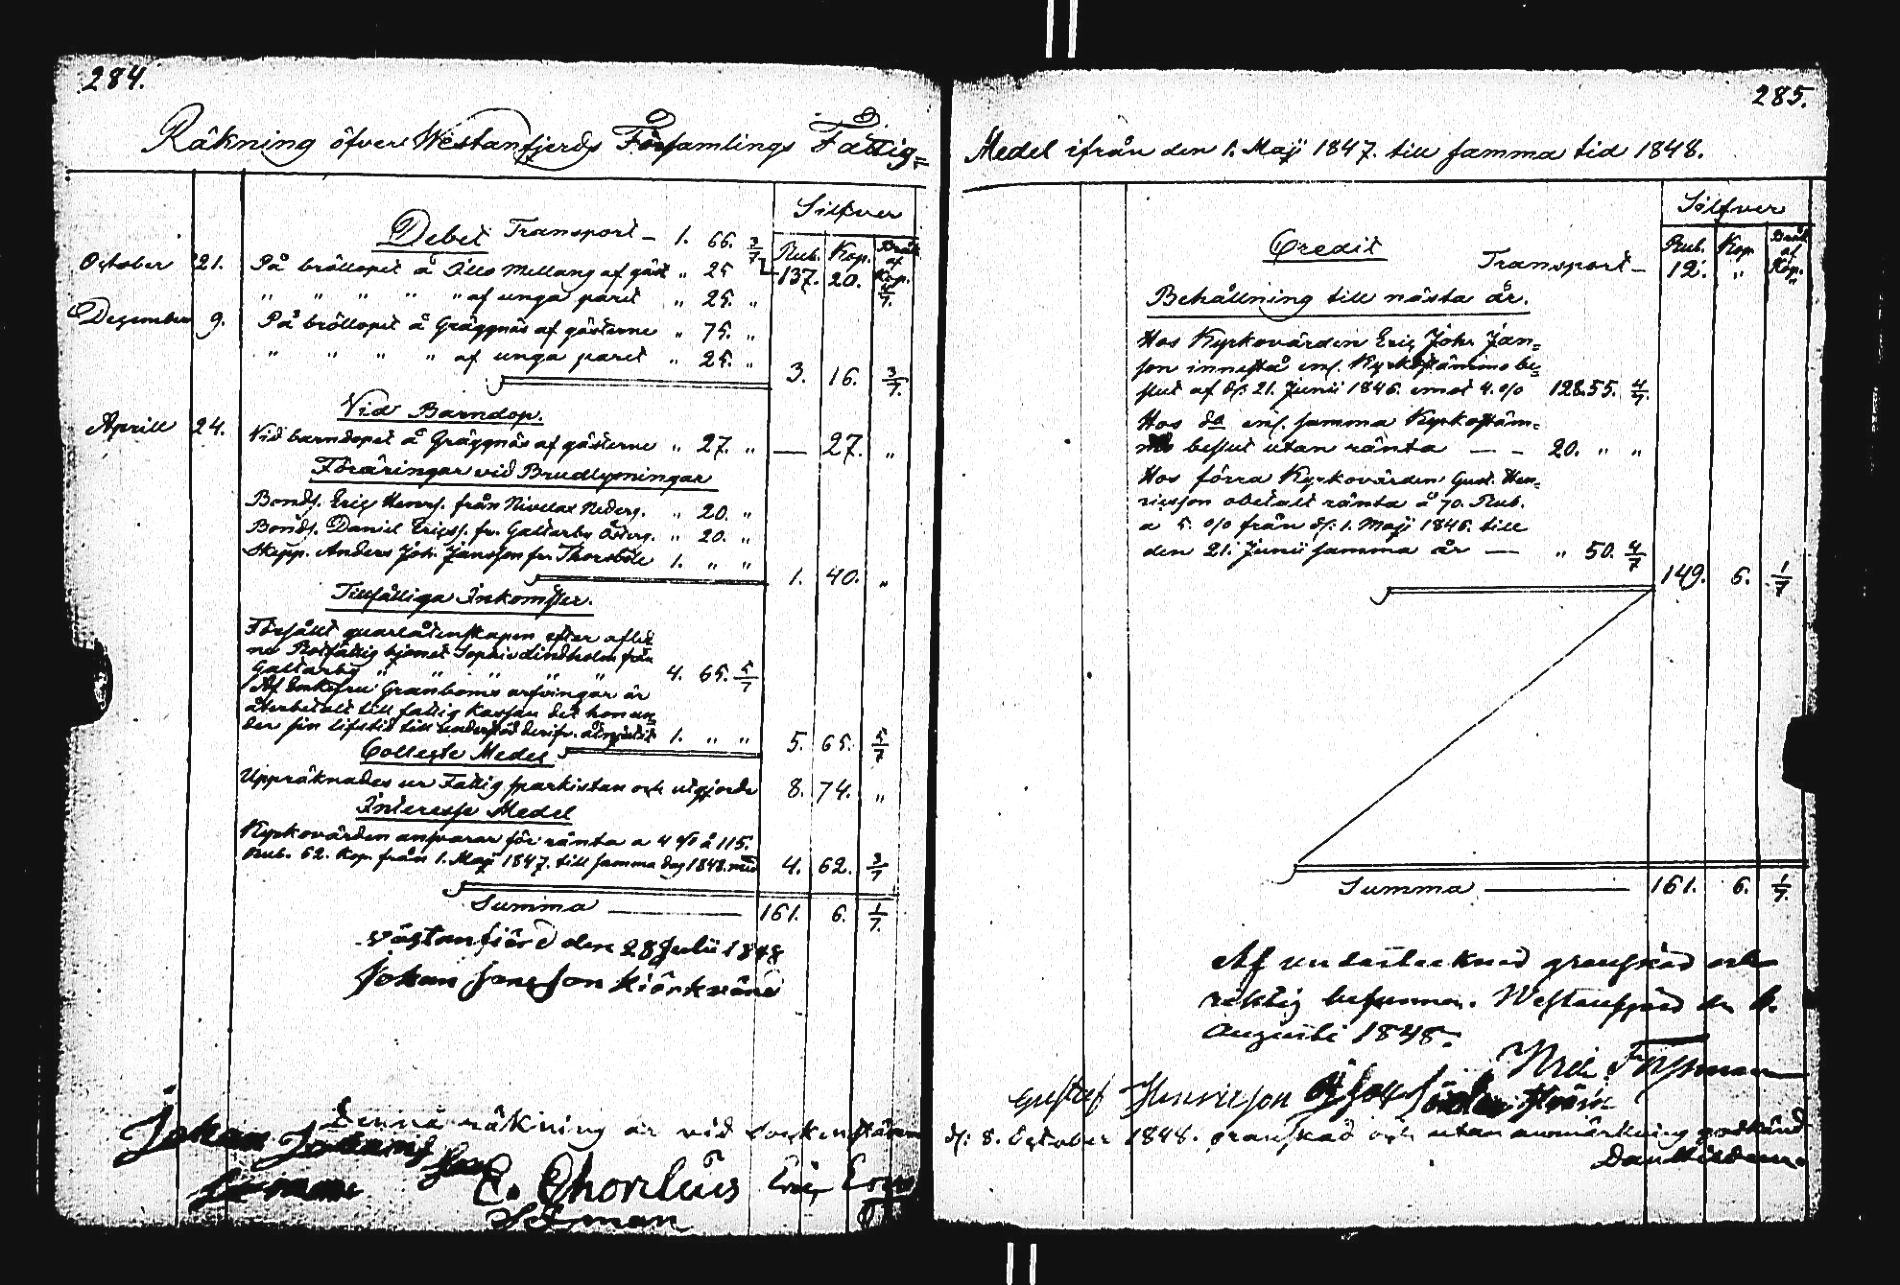 284.
Räkning öfver Westanfjerds Församlings Fattig=
Silfver
Debet Transport - 1. 66. 3/7
Rub. Kop. Bråk af Kop.
137. 20. 4/7.
October 21. På bröllopet å Lillo Mellang af gäst " 25
" " " " " af unga paret " 25. "
December 9. På bröllopet å Gräggnäs af gästerne " 75. "
" " " " af unga paret " 25. "
3. 16. 3/7.
Vid Barndop.
Aprill 24. Vid barndopet å Gräggnäs af gästerne " 27. " — 27. "
Föräringar vid Brudlysningar
Bonds. Eric Henrs. från Nivelax Nederg. " 20. "
Bonds. Daniel Ericss. fr. Galtarby Österg. " 20. "
Skepp. Anders Joh. Jansson fr. Thorsböle 1. " "
1. 40. "
Tillfälliga Inkomster.
Försåldt quarlåtenskapen efter aflid
ne Rotfattig hjonet Sophie Lindholm från
Galtarby " " " " " 4. 65. 5/7
Af Enkefru Granboms arfvingar är
återbetalt till fattig Kassan det hon un=
der sin lifstid till understöd derifr. åtnjutit 1. " "
5. 65. 5/7
Collecte Medel
Uppräknades ur Fattig sparkistan och utgjorde 8. 74. "
Interesse Medel
Kyrkovärden ansvarar för ränta a 4 % å 115.
Rub. 62. Kop. från 1. Maji 1847. till samma dag 1848. med 4. 62. 3/7
Summa 161. 6. 1/7.
Västanfiärd den 28 Julii 1848
Johan Jansson kiörkvärd
Denna räkning är vid Sockenstämm
Johan
C. Thorelius Eric
285.
Medel ifrån den 1. Maji 1847. till samma tid 1848.
Silfver
Credit
Rub. Kop. Bråk af Kop.
Transport - 12. " "
Behållning till nästa år.
Hos Kyrkovärden Eric Joh. Jan=
son innestå enl. Kyrkostämmo be=
slut af d. 21. Junii 1846. emot 4. % 128.55. 4/7.
Hos do enl. samma Kyrkostäm=
mo beslut utan ränta — - 20. " "
Hos förra Kyrkovärden Gust. Hen=
ricsson obetalt ränta å 70. Rub.
a 5. % från d. 1. Maji 1846. till
den 21. Junii samma år — " 50. 4/7
149. 6. 1/7
Summa 161. 6. 1/7.
Af undertecknad granskad och
riktig befunnen. Westanfjerd den
Augusti 1848.
Gustaf Henricsson
d. 8. October 1848. granskad och utan anmärkning godkänd